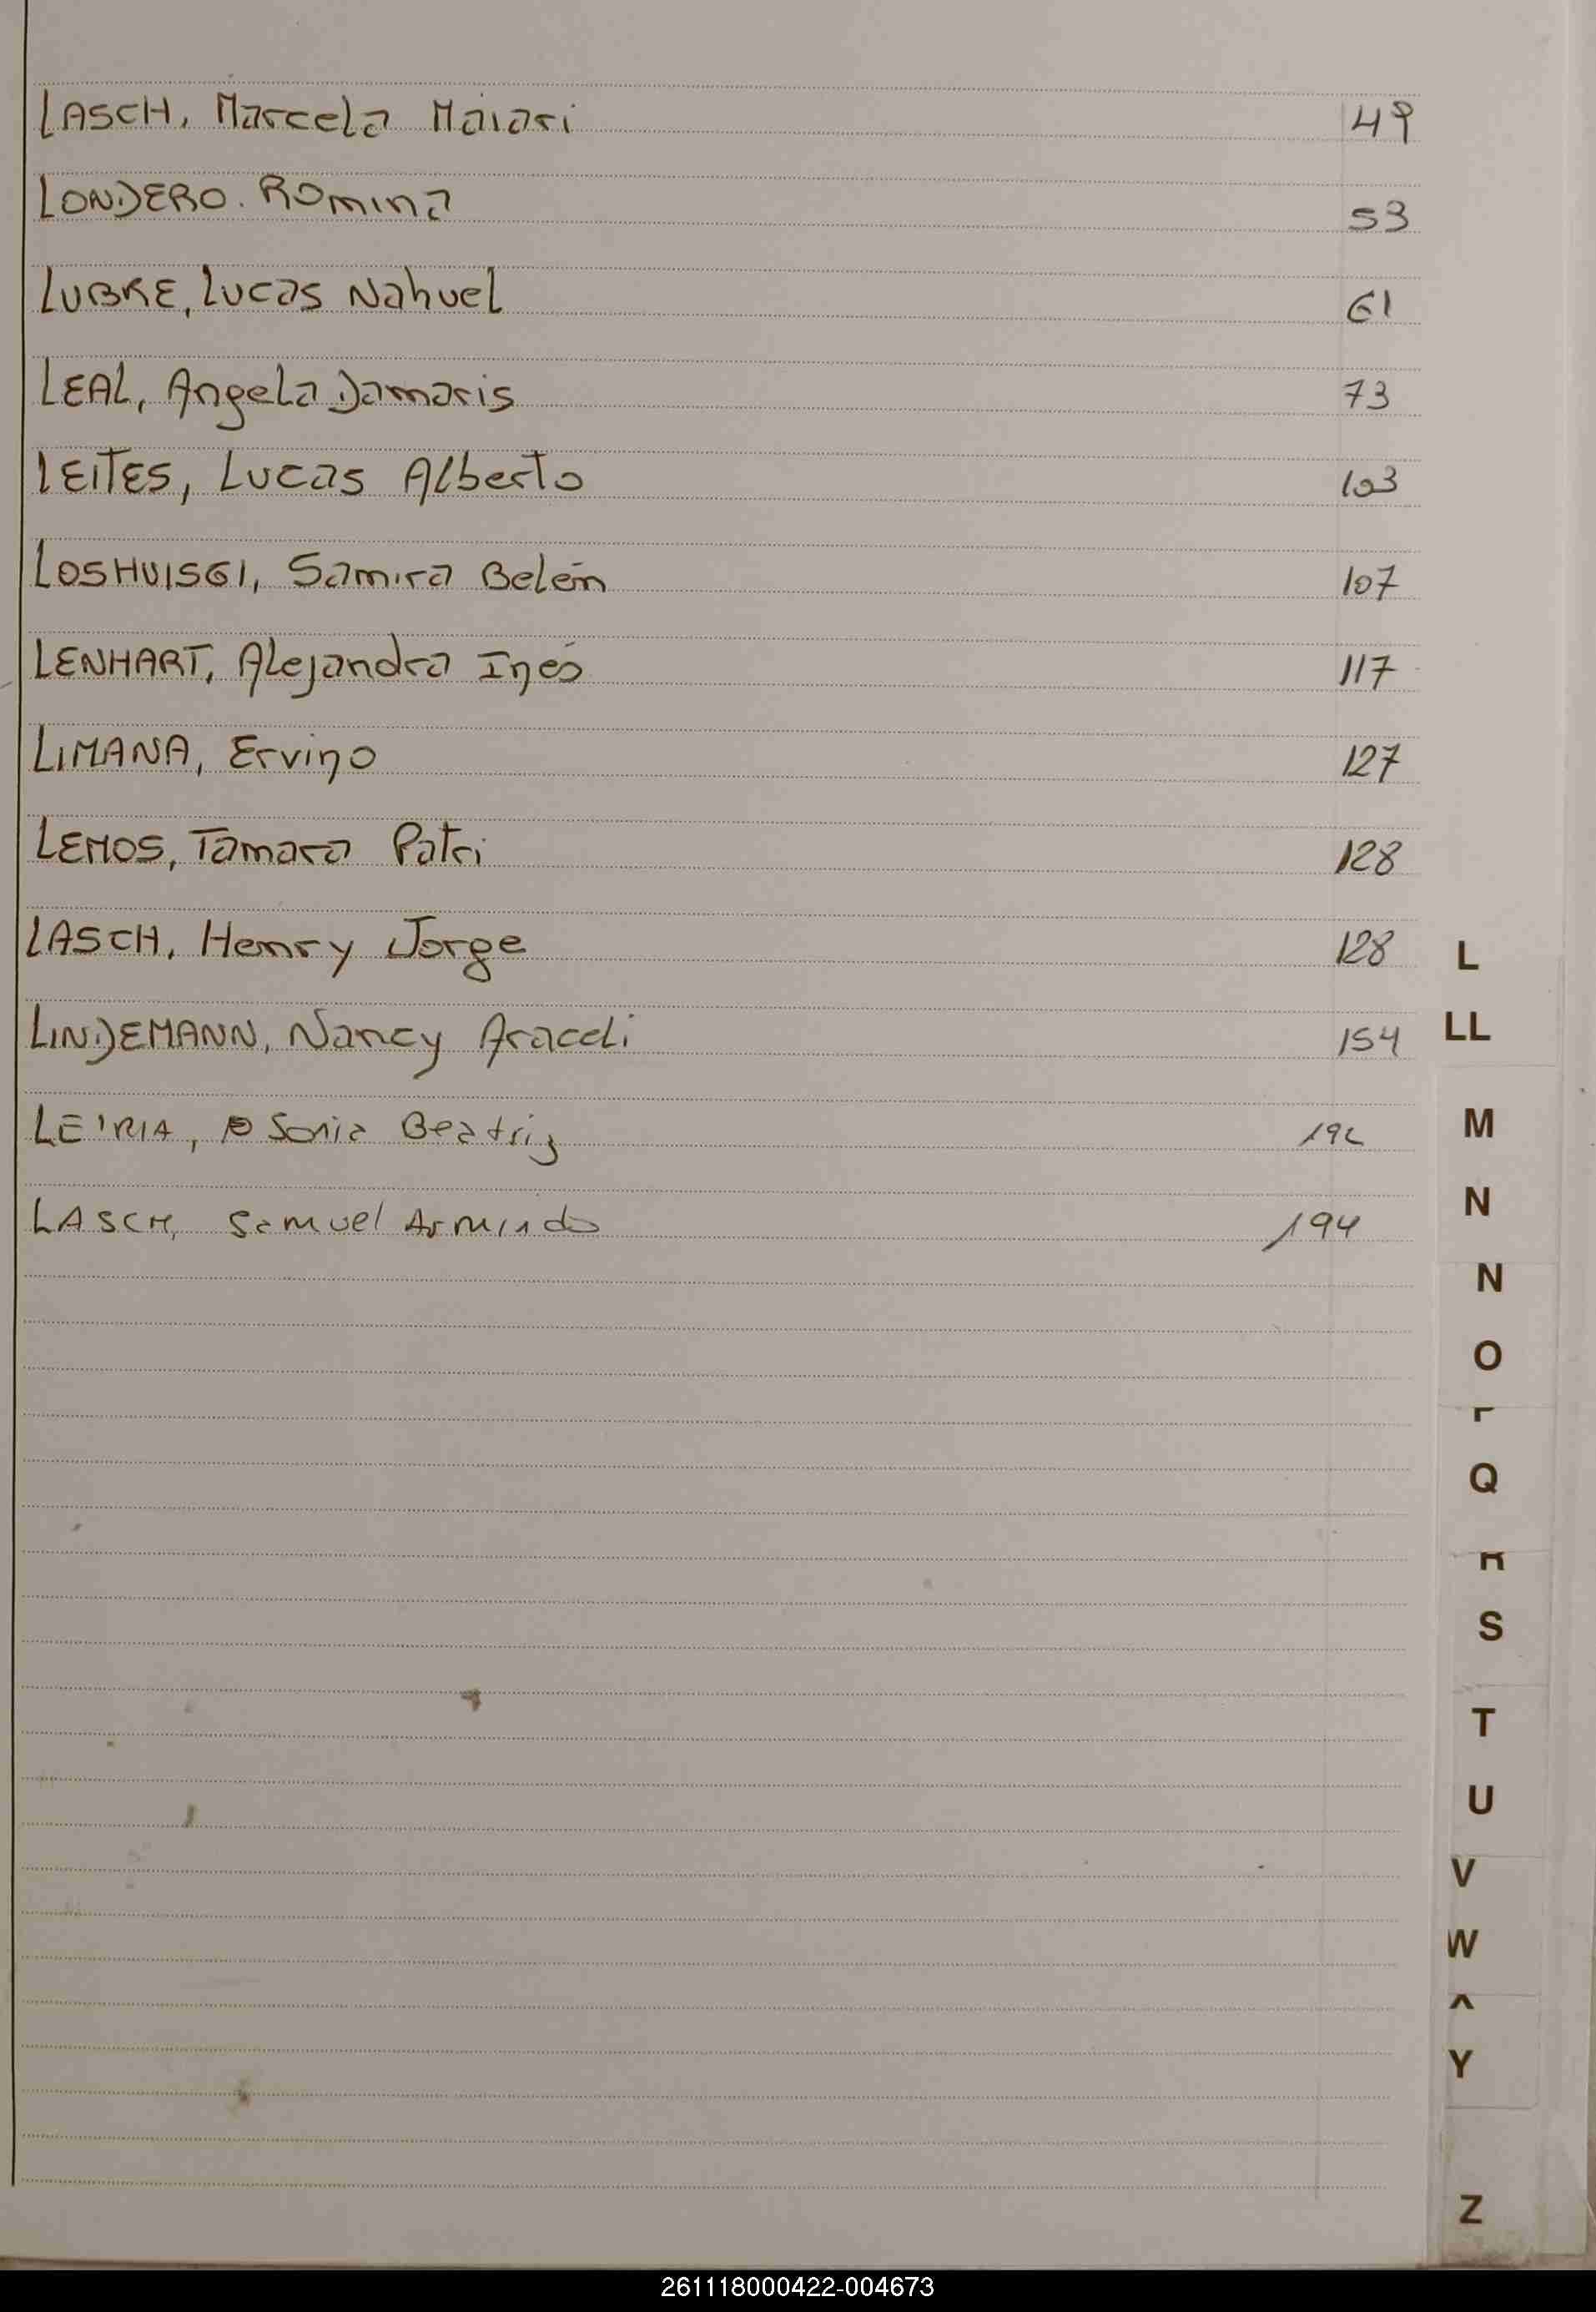 LASCH, Marcela Maiari 49
LONDERO. Romina 53
LUBRE, Lucas Nahuel 61
LEAL, Angela Damaris 73
LEITES, Lucas Alberto 103
LOSHUISGI, Samira Belén 107
LENHART, Alejandra Inés 117
LIMANA, Ervino 127
LEMOS, Tamara Patri 128
LASCH, Henry Jorge 128
L
LINDEMANN, Nancy Araceli 154
LL
LEIRIA, Sonia Beatriz 192
M
LASCH, Samuel Armindo 194
N
N
O
Q
R
S
T
U
V
W
Y
Z
261118000422-004673